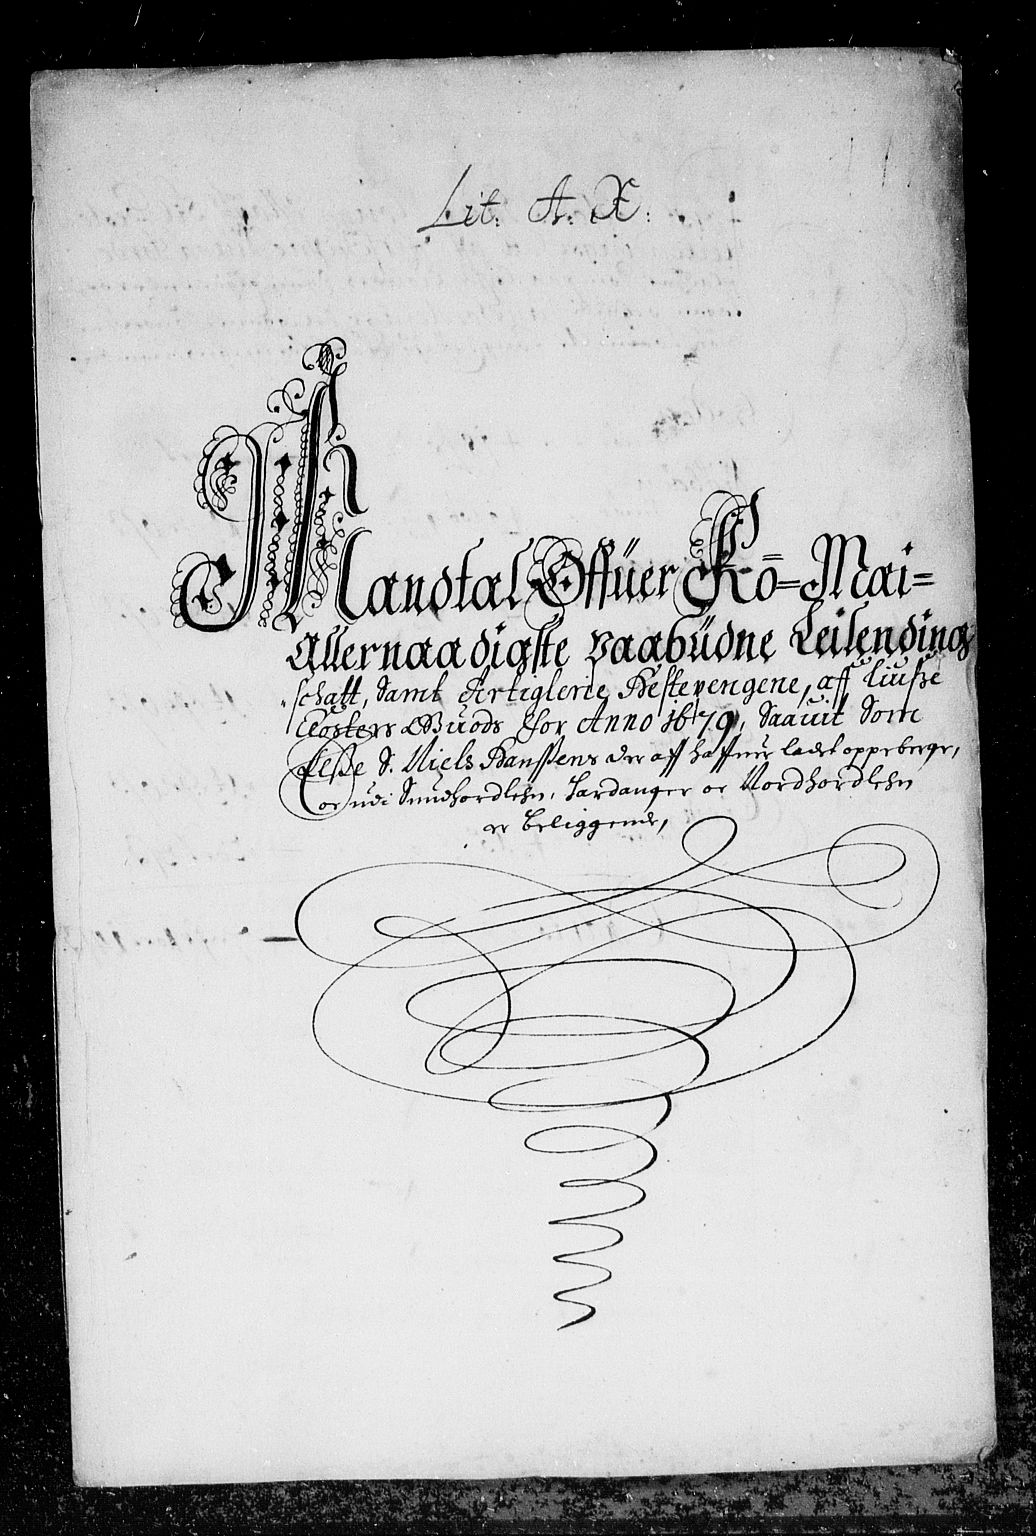 Lit: A: X:
Mandtal Offuer Kö= Mai=
Allernaadigste Paabüdne Leilending
schatt, Samt Artiglerie Hestepengene, aff Liusße
Closters Guods For Anno 1679, Saauit Som
Elsße S. Niels Hansßens der aff haffuer ladet oppeberge,
oc udi Sundhordlehn, Hardanger oc Nordhordlehn
er beliggende,